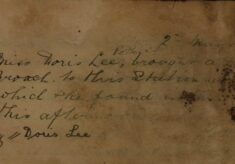 2nd May
Miss Doris Lee, brought a
broach to this Station
which she found
this after
Doris Lee